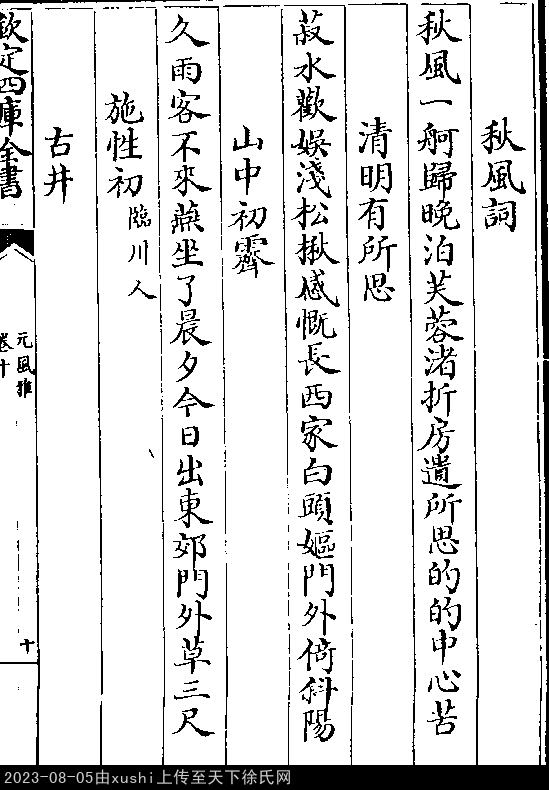 秋風詞
秋風一舸歸晚泊芙蓉渚折房遺所思的的中心苦
清明有所思
菽水歡娛淺松揪感慨長西家白頭嫗門外倚斜陽
山中初霽
久雨客不來燕坐了晨夕今日出東郊門外草三尺
施性初臨川人
古井
欽定四庫全書
元風雅
卷十
十
2023-08-05由xushi上传至天下徐氏网